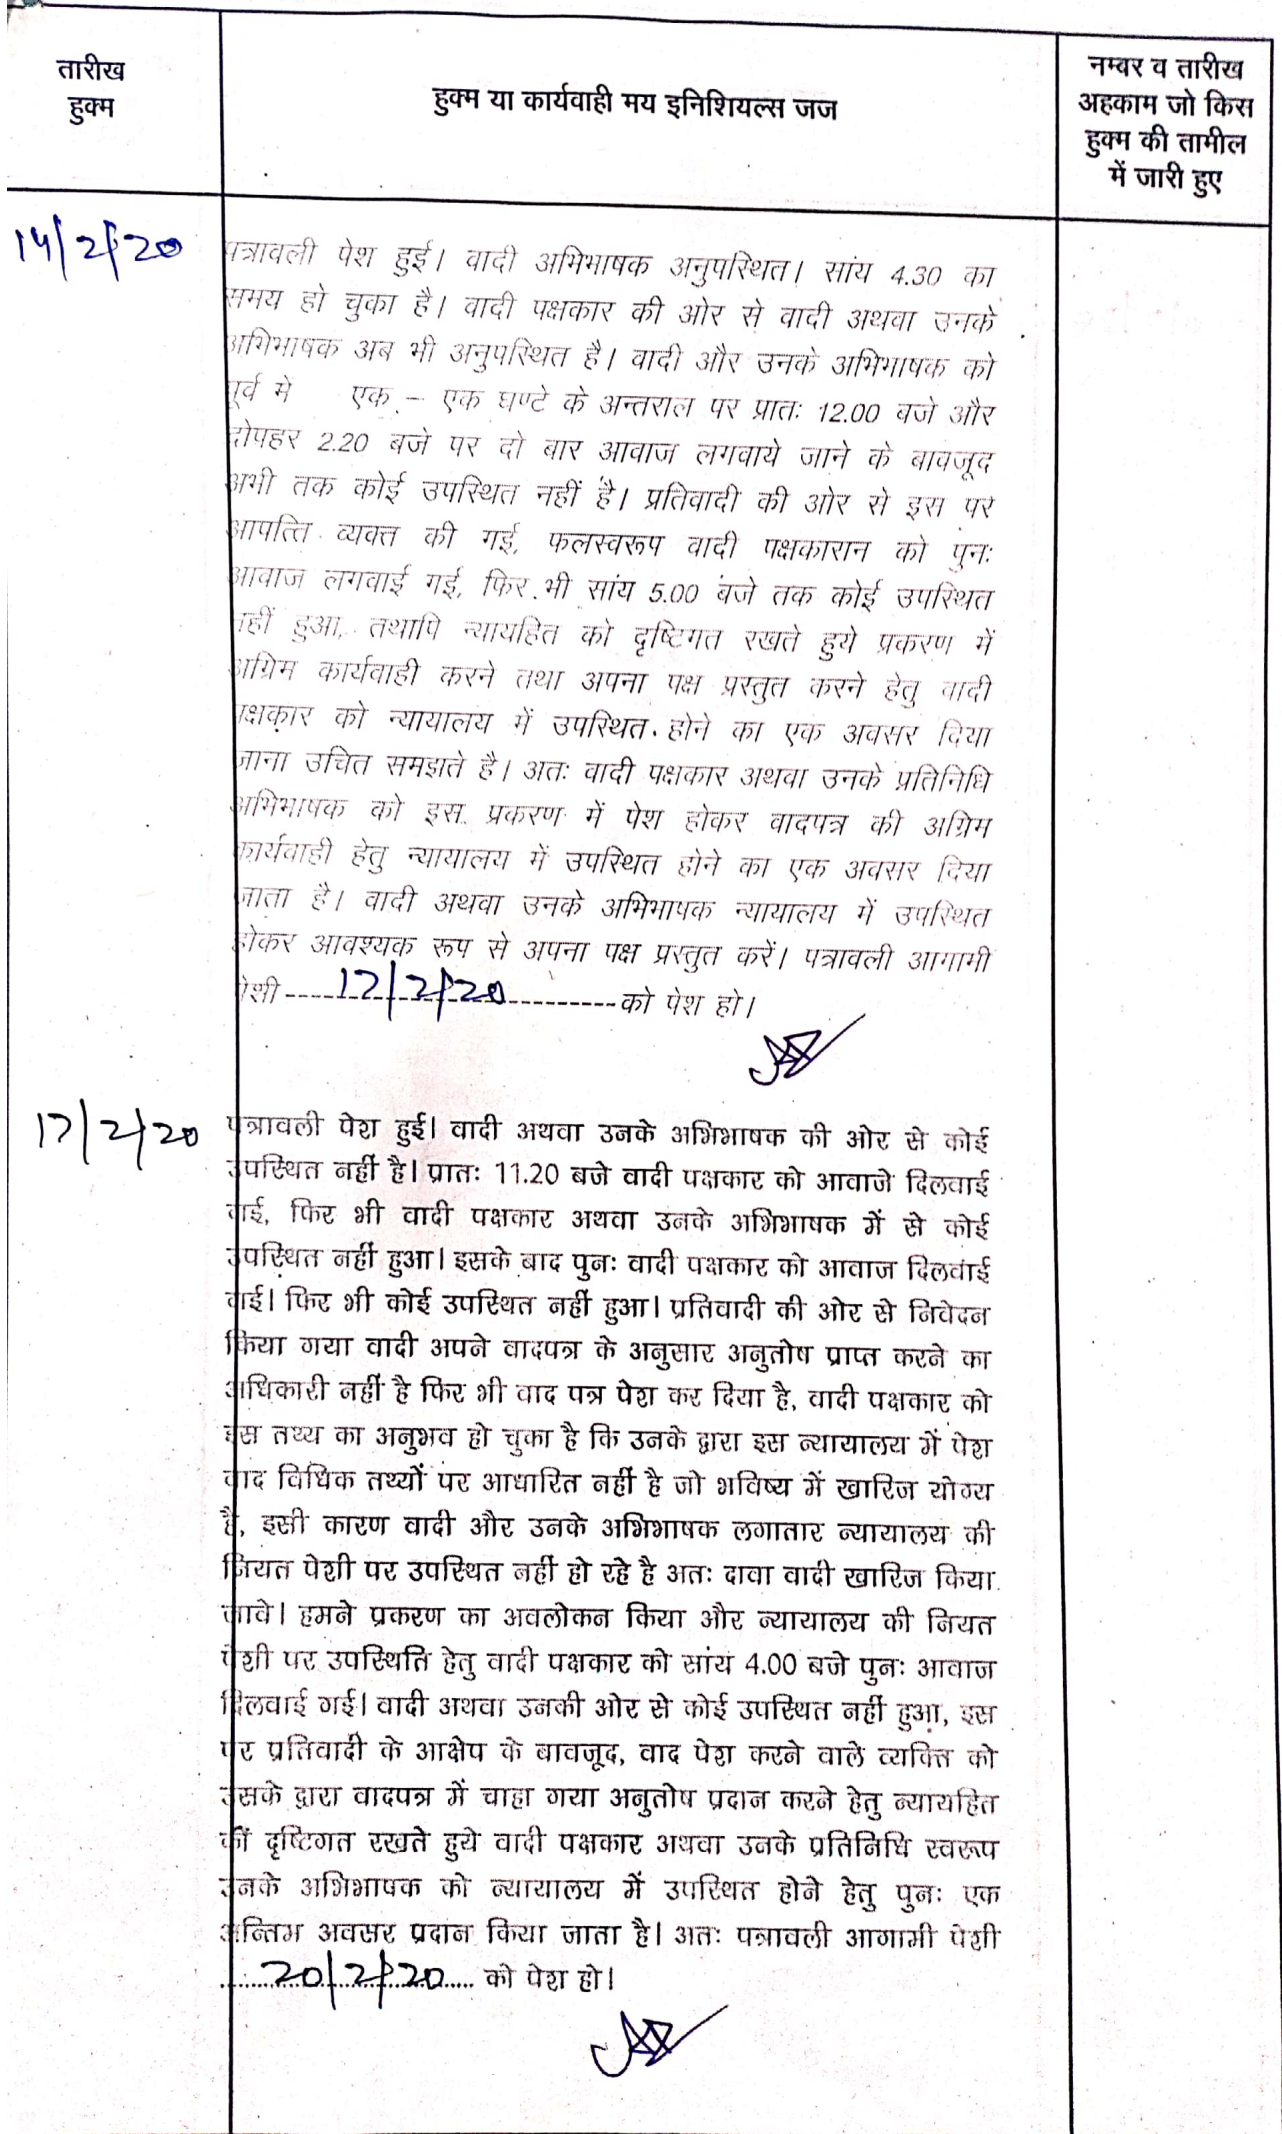 तारीख
हुक्म
हुक्म या कार्यवाही मय इनिशियल्स जज
नम्बर व तारीख
अहकाम जो किस
हुक्म की तामील
में जारी हुए
14/2/20
पत्रावली पेश हुई। वादी अभिभाषक अनुपस्थित। सांय 4.30 का
समय हो चुका है। वादी पक्षकार की ओर से वादी अथवा उनके
अभिभाषक अब भी अनुपस्थित है। वादी और उनके अभिभाषक को
पूर्व में एक – एक घण्टे के अन्तराल पर प्रातः 12.00 बजे और
दोपहर 2.20 बजे पर दो बार आवाज लगवाये जाने के बावजूद
अभी तक कोई उपस्थित नहीं है। प्रतिवादी की ओर से इस पर
आपत्ति व्यक्त की गई, फलस्वरूप वादी पक्षकारान को पुनः
आवाज लगवाई गई, फिर भी सांय 5.00 बजे तक कोई उपस्थित
नहीं हुआ, तथापि न्यायहित को दृष्टिगत रखते हुये प्रकरण में
अग्रिम कार्यवाही करने तथा अपना पक्ष प्रस्तुत करने हेतु वादी
पक्षकार को न्यायालय में उपस्थित होने का एक अवसर दिया
जाना उचित समझते है। अतः वादी पक्षकार अथवा उनके प्रतिनिधि
अभिभाषक को इस प्रकरण में पेश होकर वादपत्र की अग्रिम
कार्यवाही हेतु न्यायालय में उपस्थित होने का एक अवसर दिया
जाता है। वादी अथवा उनके अभिभाषक न्यायालय में उपस्थित
होकर आवश्यक रूप से अपना पक्ष प्रस्तुत करें। पत्रावली आगामी
पेशी ----17/2/20---- को पेश हो।
17/2/20
पत्रावली पेश हुई। वादी अथवा उनके अभिभाषक की ओर से कोई
उपस्थित नहीं है। प्रातः 11.20 बजे वादी पक्षकार को आवाजे दिलवाई
गई, फिर भी वादी पक्षकार अथवा उनके अभिभाषक में से कोई
उपस्थित नहीं हुआ। इसके बाद पुनः वादी पक्षकार को आवाज दिलवाई
गई। फिर भी कोई उपस्थित नहीं हुआ। प्रतिवादी की ओर से निवेदन
किया गया वादी अपने वादपत्र के अनुसार अनुतोष प्राप्त करने का
अधिकारी नहीं है फिर भी वाद पत्र पेश कर दिया है, वादी पक्षकार को
इस तथ्य का अनुभव हो चुका है कि उनके द्वारा इस न्यायालय में पेश
वाद विधिक तथ्यों पर आधारित नहीं है जो भविष्य में खारिज योग्य
है, इसी कारण वादी और उनके अभिभाषक लगातार न्यायालय की
नियत पेशी पर उपस्थित नहीं हो रहे है अतः दावा वादी खारिज किया
जावे। हमने प्रकरण का अवलोकन किया और न्यायालय की नियत
पेशी पर उपस्थिति हेतु वादी पक्षकार को सांय 4.00 बजे पुनः आवाज
दिलवाई गई। वादी अथवा उनकी ओर से कोई उपस्थित नहीं हुआ, इस
पर प्रतिवादी के आक्षेप के बावजूद, वाद पेश करने वाले व्यक्ति को
उसके द्वारा वादपत्र में चाहा गया अनुतोष प्रदान करने हेतु न्यायहित
को दृष्टिगत रखते हुये वादी पक्षकार अथवा उनके प्रतिनिधि स्वरूप
उनके अभिभाषक को न्यायालय में उपस्थित होने हेतु पुनः एक
अन्तिम अवसर प्रदान किया जाता है। अतः पत्रावली आगामी पेशी
....20/2/20.... को पेश हो।